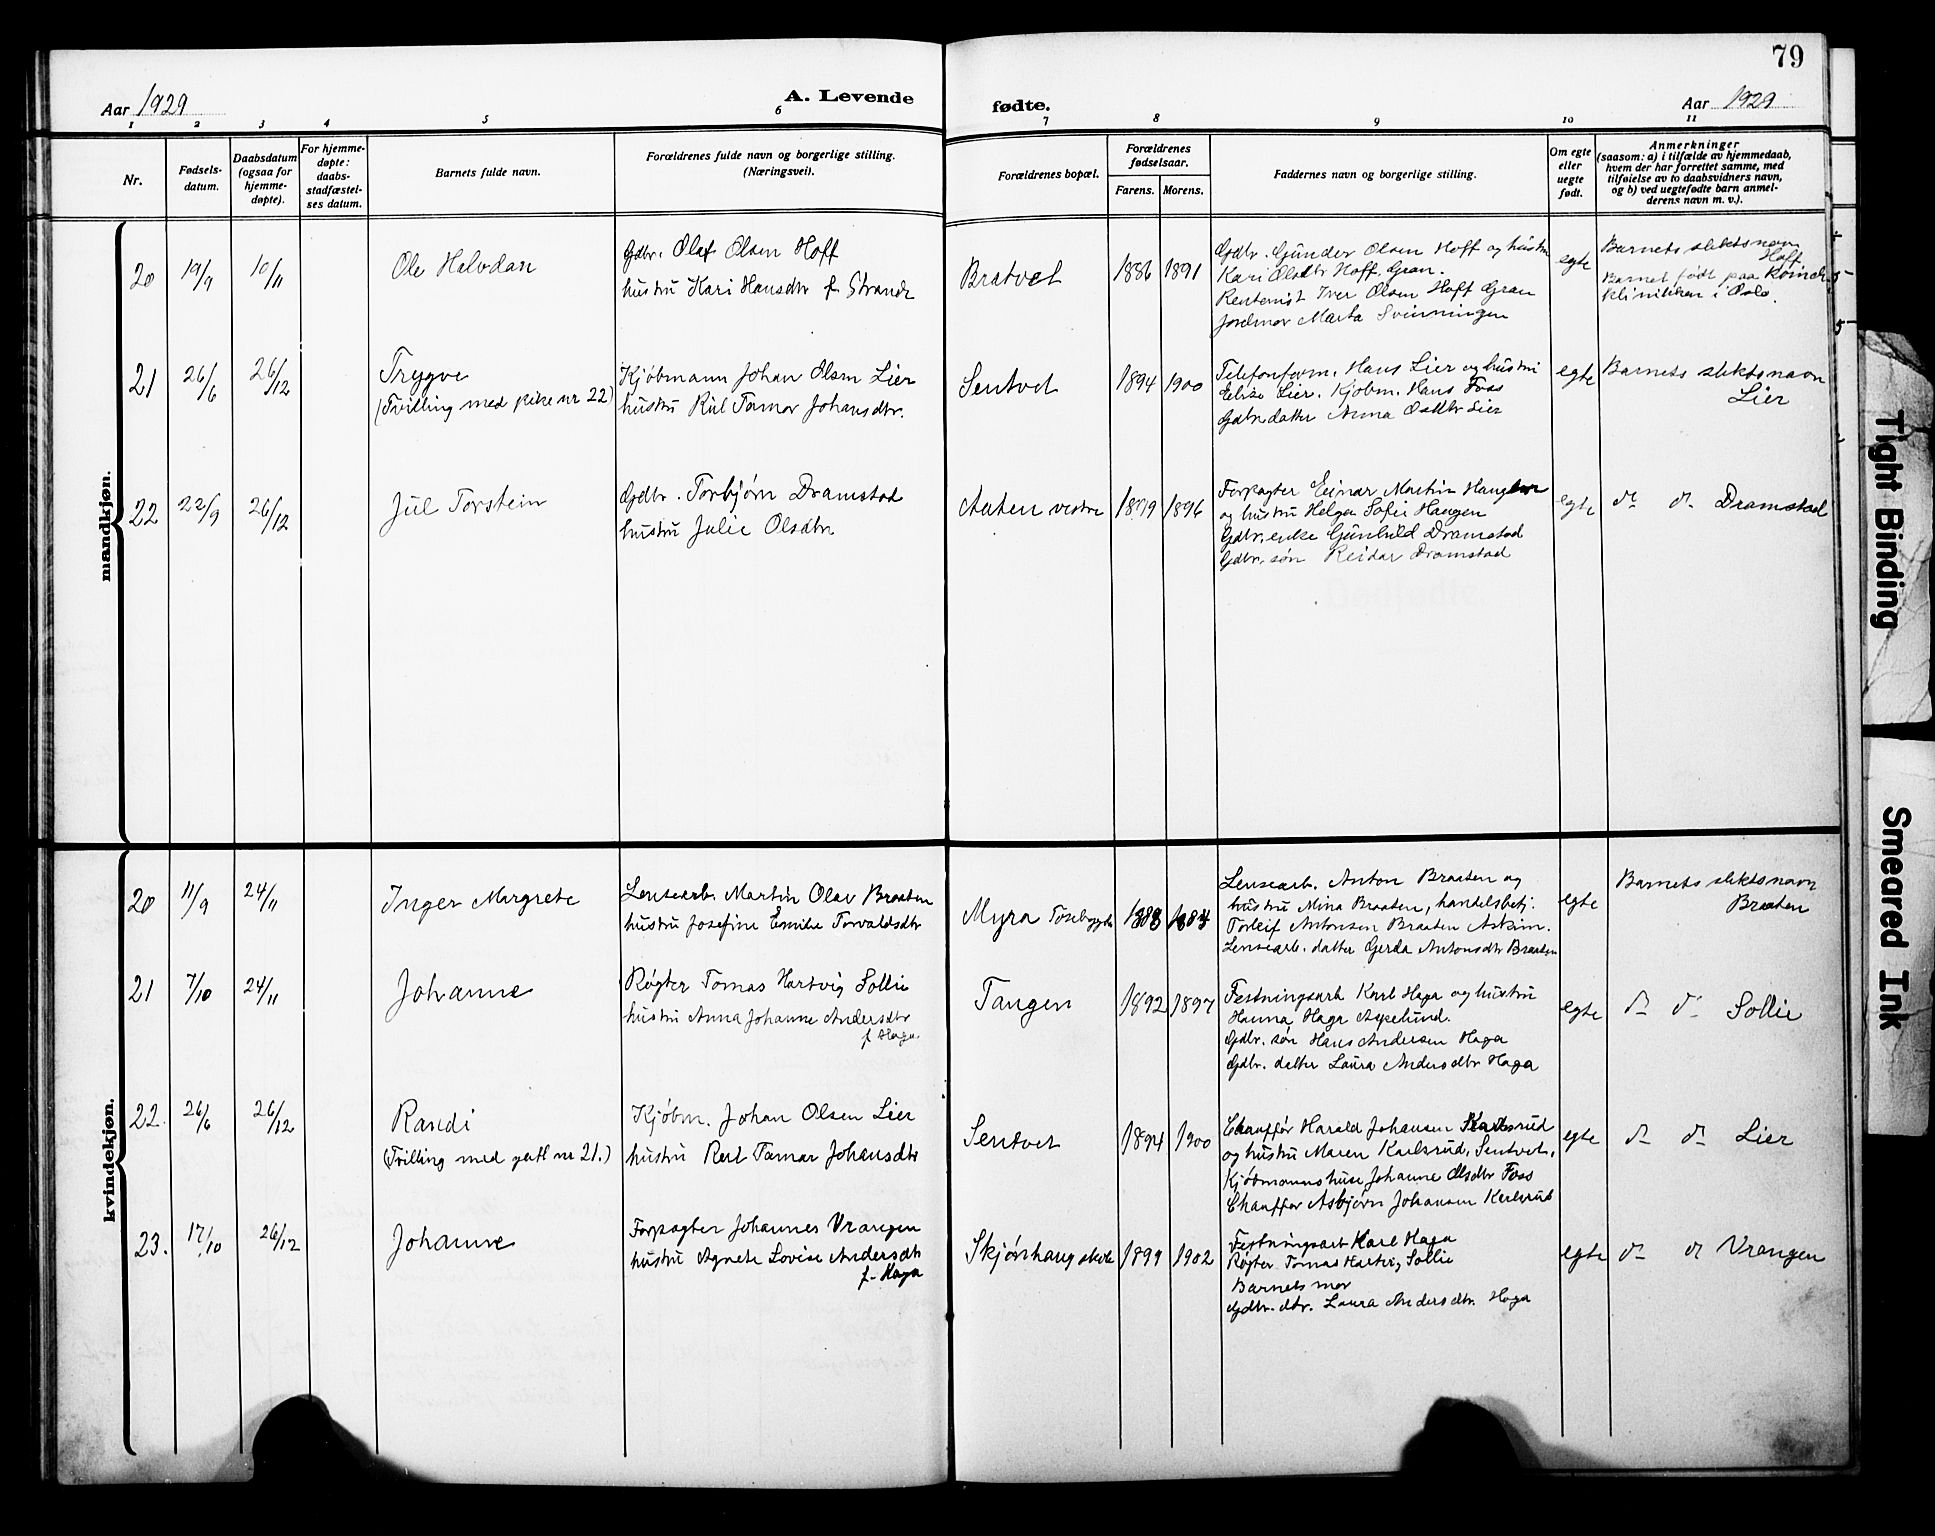 79
Aar 1929
A. Levende fødte.
Aar 1929
1 2 3 4 5 6 7 8 9 10 11
Nr.
Fødsels-
datum.
Daabsdatum
(ogsaa for
hjemme-
døpte).
For hjemme-
døpte:
daabs-
stadfæstel-
ses datum.
Barnets fulde navn.
Forældrenes fulde navn og borgerlige stilling.
(Næringsvei).
Forældrenes bopæl.
Forældrenes
fødselsaar.
Farens. Morens.
Faddernes navn og borgerlige stilling.
Om egte
eller
uegte
født.
Anmerkninger
(saasom: a) i tilfælde av hjemmedaab,
hvem der har forrettet samme, med
tilføielse av to daabsvidners navn,
og b) ved uegtefødte barn anmel-
derens navn m. v.).
mandkjøn.
20
19/9
10/11
Ole Halvdan
Gdbr. Olaf Olsen Hoff
hustru Kari Hansdtr f. Strande
Bratvet
1886 1891
Gdbr. Gunder Olsen Hoff og hustru
Kari Olsdtr Hoff, Gran.
Rentenist Iver Olsen Hoff Gran
Jordmor Marta Svinningen
egte
Barnets slektsnavn
Hoff
Barnet født paa Kvinde
klinikken i Oslo.
21
26/6
26/12
Trygve
(Tvilling med pike nr 22)
Kjøbmann Johan Olsen Lier
hustru Rut Tamar Johansdtr.
Sentvet
1894 1900
Telefonform. Hans Lier og hustru
Elise Lier. Kjøbm. Hans Foss
Gdbr datter Anna Olsdtr Lier
egte
Barnets slektsnavn
Lier
22
22/9
26/12
Jul Torstein
Gdbr. Torbjørn Dramstad
hustru Julie Olsdtr
Aaten vestre
1879 1896
Forpagter Einar Martin Haugen
og hustru Helga Sofie Haugen
Gdbr. enke Gunhild Dramstad
Gdbr. søn Reidar Dramstad
egte
do do Dramstad
kvindekjøn.
20
11/9
24/11
Inger Margrete
Lensearb. Martin Olav Braaten
hustru Josefine Emilie Torvaldsdtr
Myra
1888 1884
Lensearb. Anton Braaten og
hustru Mina Braaten, handelsbetj.
Torleif Antonsen Braaten Askim.
Lensearb. datter Gerda Antonsdtr Braaten
egte
Barnets slektsnavn
Braaten
21
7/10
24/11
Johanne
Røgter Tomas Hartvig Sollie
hustru Anna Johanne Andersdtr
f. Haga
Tangen
1892 1897
Festningsarb Karl Haga og hustru
Hanna Haga Aspelund.
Gdbr. søn Hans Andersen Haga
Gdbr. datter Laura Andersdtr Haga
egte
do do Sollie
22.
26/6
26/12
Randi
(Tvilling med gutt nr 21.)
Kjøbm. Johan Olsen Lier
hustru Rut Tamar Johansdtr
Sentvet
1894 1900
Chauffør Harald Johansen Karlsrud
og hustru Maren Karlsrud, Sentvet,
Kjøbmannshusr Johanne Olsdtr Foss
Chauffør Asbjørn Johansen Karlsrud
egte
do do Lier
23.
17/10
26/12
Johanne
Forpagter Johannes Vrangen
hustru Agnete Lovise Andersdtr
f. Haga
Skjønhaug skole
1899 1902
Festningsarb Karl Haga
Røgter Tomas Hartvig Sollie
Barnets mor
Gdbr. dtr. Laura Andersdtr. Haga
egte
do do Vrangen
Tight Binding
Smeared Ink